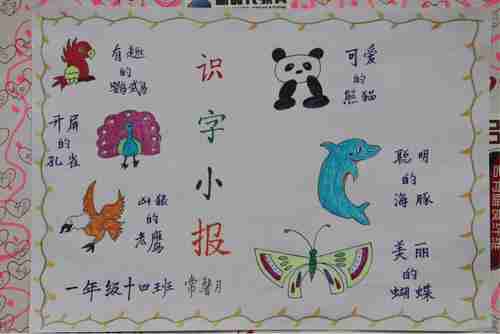 识字小报
有趣
的
鹦鹉
开屏
的
孔雀
凶狠
的
老鹰
可爱
的
熊猫
聪明
的
海豚
美丽
的
蝴蝶
一年级十四班